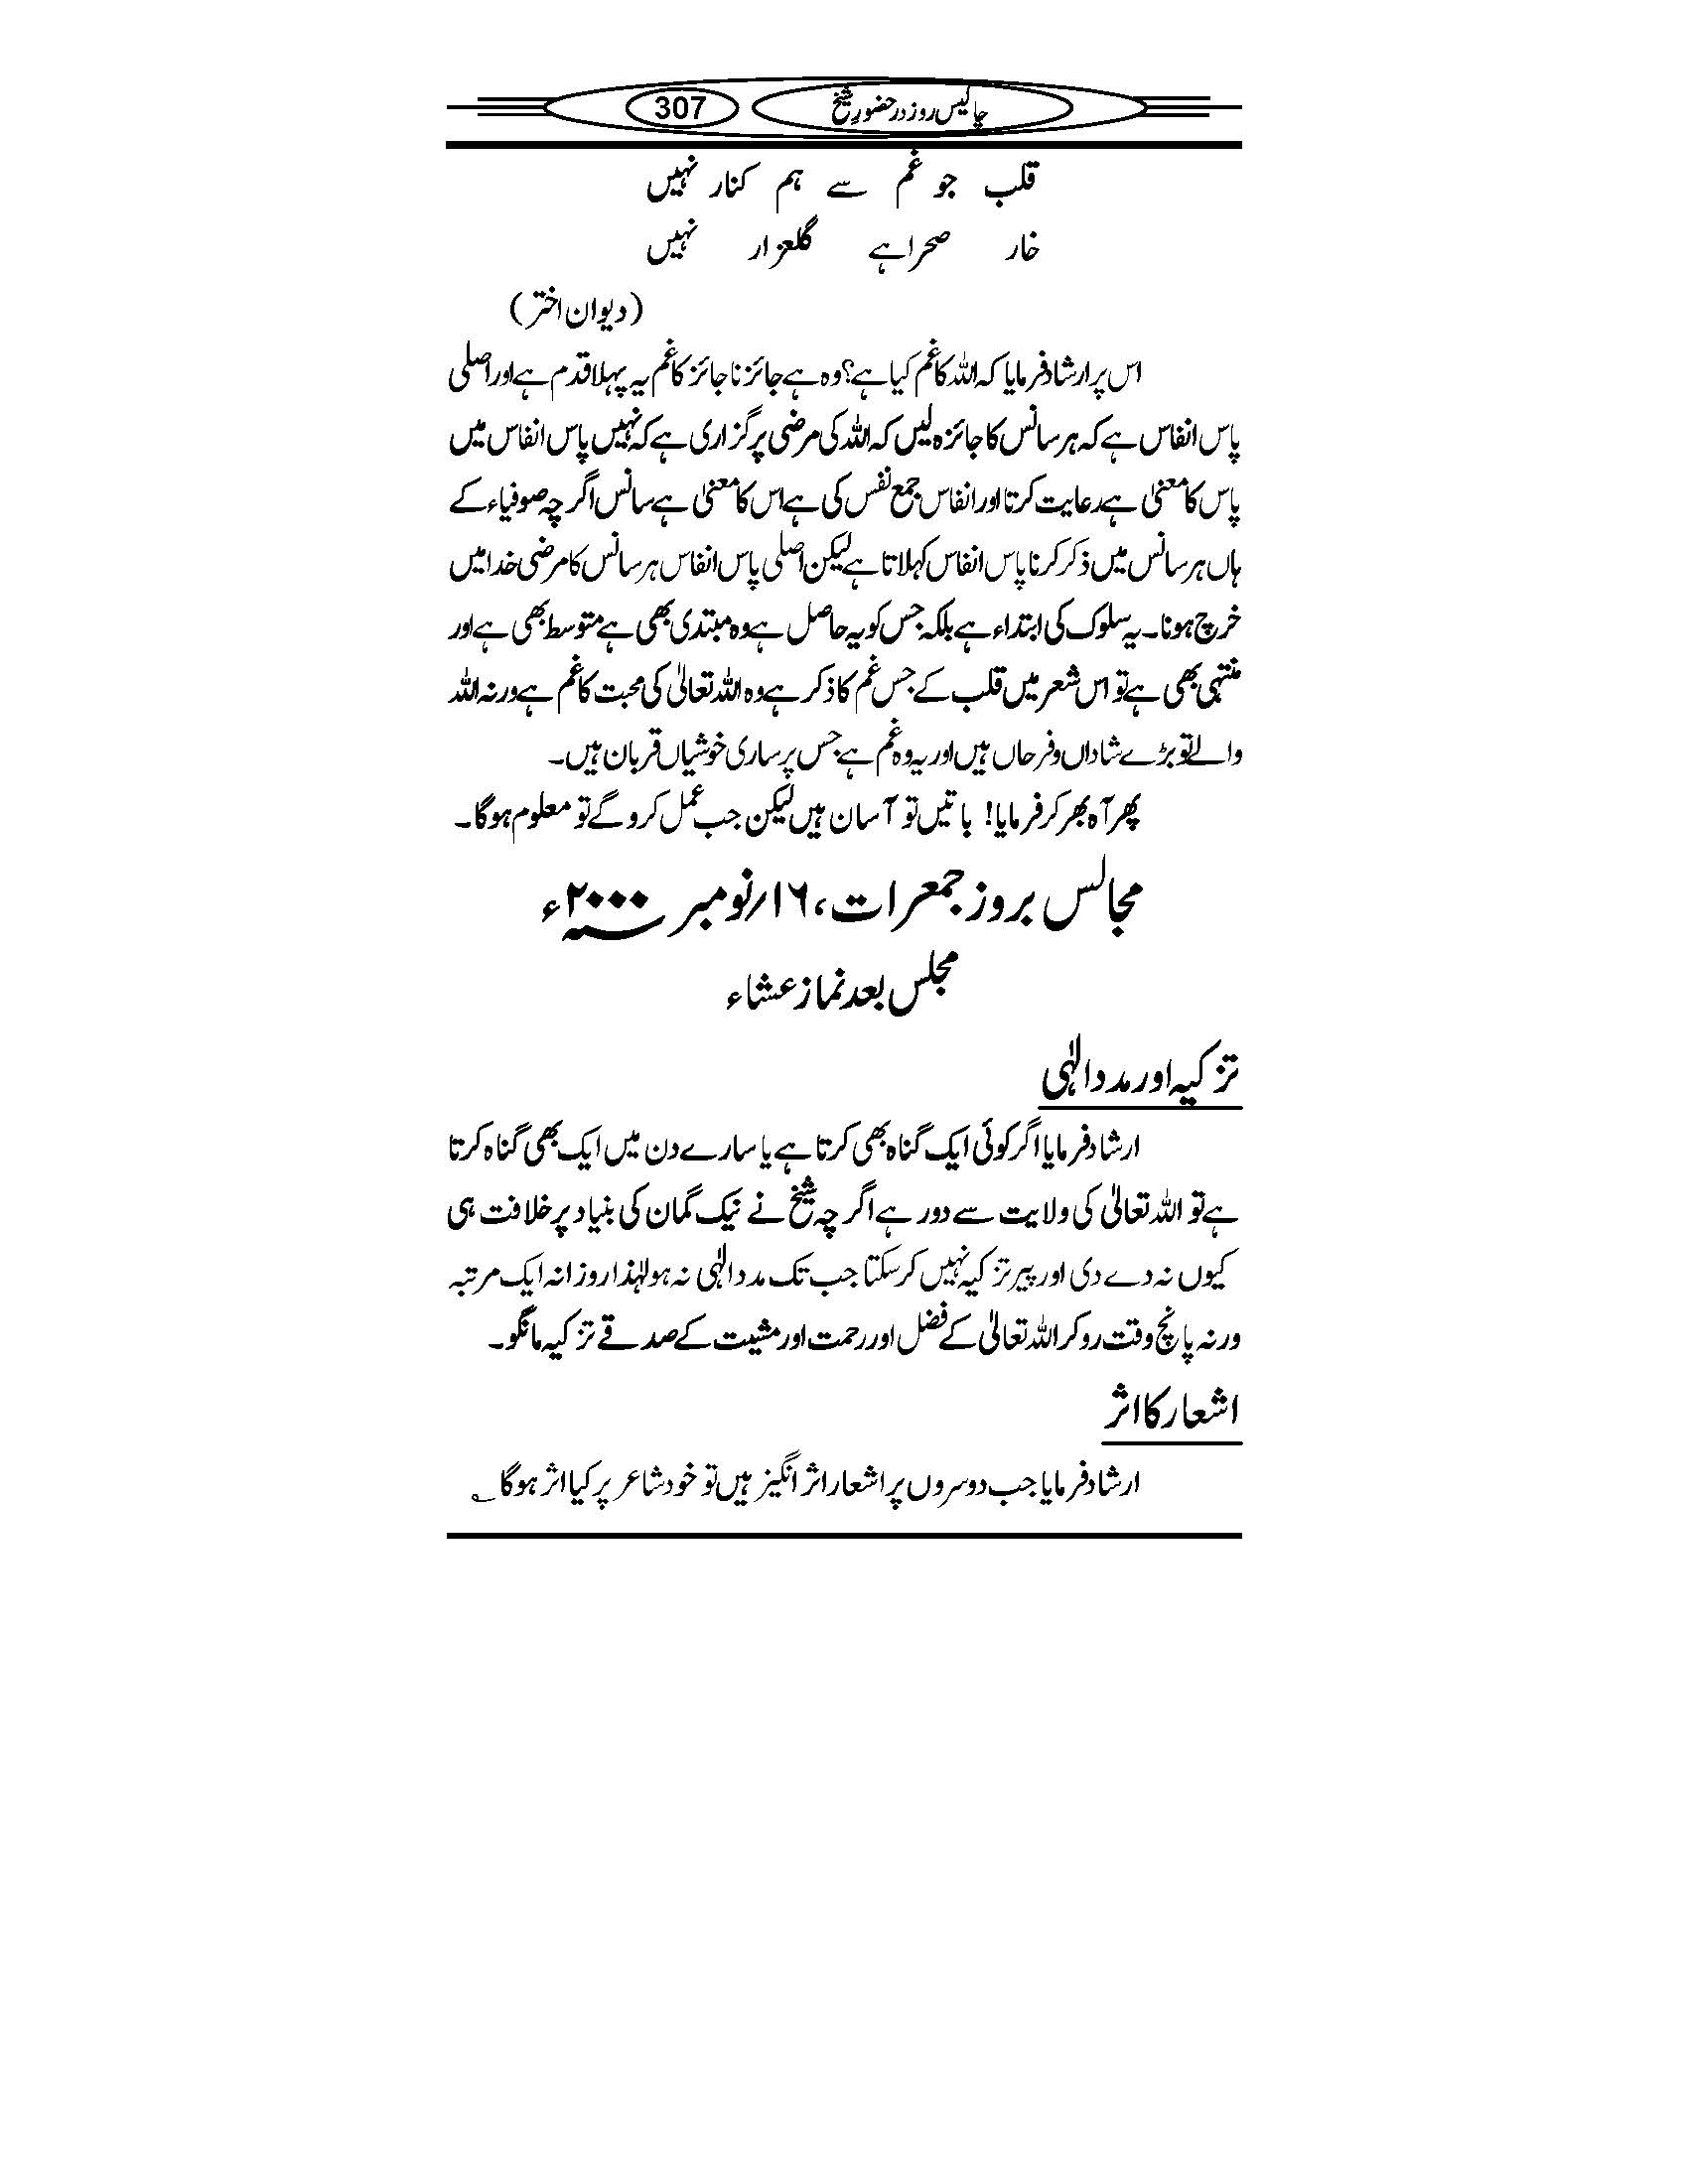 چالیس روز در حضورِ شیخ 307
قلب جو غم سے ہم کنار نہیں
خار صحرا ہے گلعزار نہیں
(دیوان اختر)
اس پر ارشاد فرمایا کہ اللہ کا غم کیا ہے؟ وہ ہے جائز ناجائز کا غم یہ پہلا قدم ہے اور اصلی
پاس انفاس ہے کہ ہر سانس کا جائزہ لیں کہ اللہ کی مرضی پر گزاری ہے کہ نہیں پاس انفاس میں
پاس کا معنیٰ ہے رعایت کرتا اور انفاس جمع نفس کی ہے اس کا معنیٰ ہے سانس اگر چہ صوفیاء کے
ہاں ہر سانس میں ذکر کرنا پاس انفاس کہلاتا ہے لیکن اصلی پاس انفاس ہر سانس کا مرضی خدا میں
خرچ ہونا۔ یہ سلوک کی ابتداء ہے بلکہ جس کو یہ حاصل ہے وہ مبتدی بھی ہے متوسط بھی ہے اور
منتہی بھی ہے تو اس شعر میں قلب کے جس غم کا ذکر ہے وہ اللہ تعالیٰ کی محبت کا غم ہے ورنہ اللہ
والے تو بڑے شاداں و فرحاں ہیں اور یہ وہ غم ہے جس پر ساری خوشیاں قربان ہیں۔
پھر آہ بھر کر فرمایا! باتیں تو آسان ہیں لیکن جب عمل کرو گے تو معلوم ہوگا۔
مجالس بروز جمعرات، ۱۶/نومبر ۲۰۰۰؁ء
مجلس بعد نماز عشاء
تزکیہ اور مدد الٰہی
ارشاد فرمایا اگر کوئی ایک گناہ بھی کرتا ہے یا سارے دن میں ایک بھی گناہ کرتا
ہے تو اللہ تعالیٰ کی ولایت سے دور ہے اگر چہ شیخ نے نیک گمان کی بنیاد پر خلافت ہی
کیوں نہ دے دی اور پیر تزکیہ نہیں کرسکتا جب تک مدد الٰہی نہ ہو لہٰذا روزانہ ایک مرتبہ
ورنہ پانچ وقت رو کر اللہ تعالیٰ کے فضل اور رحمت اور مشیت کے صدقے تزکیہ مانگو۔
اشعار کا اثر
ارشاد فرمایا جب دوسروں پر اشعار اثر انگیز ہیں تو خود شاعر پر کیا اثر ہوگا ؎